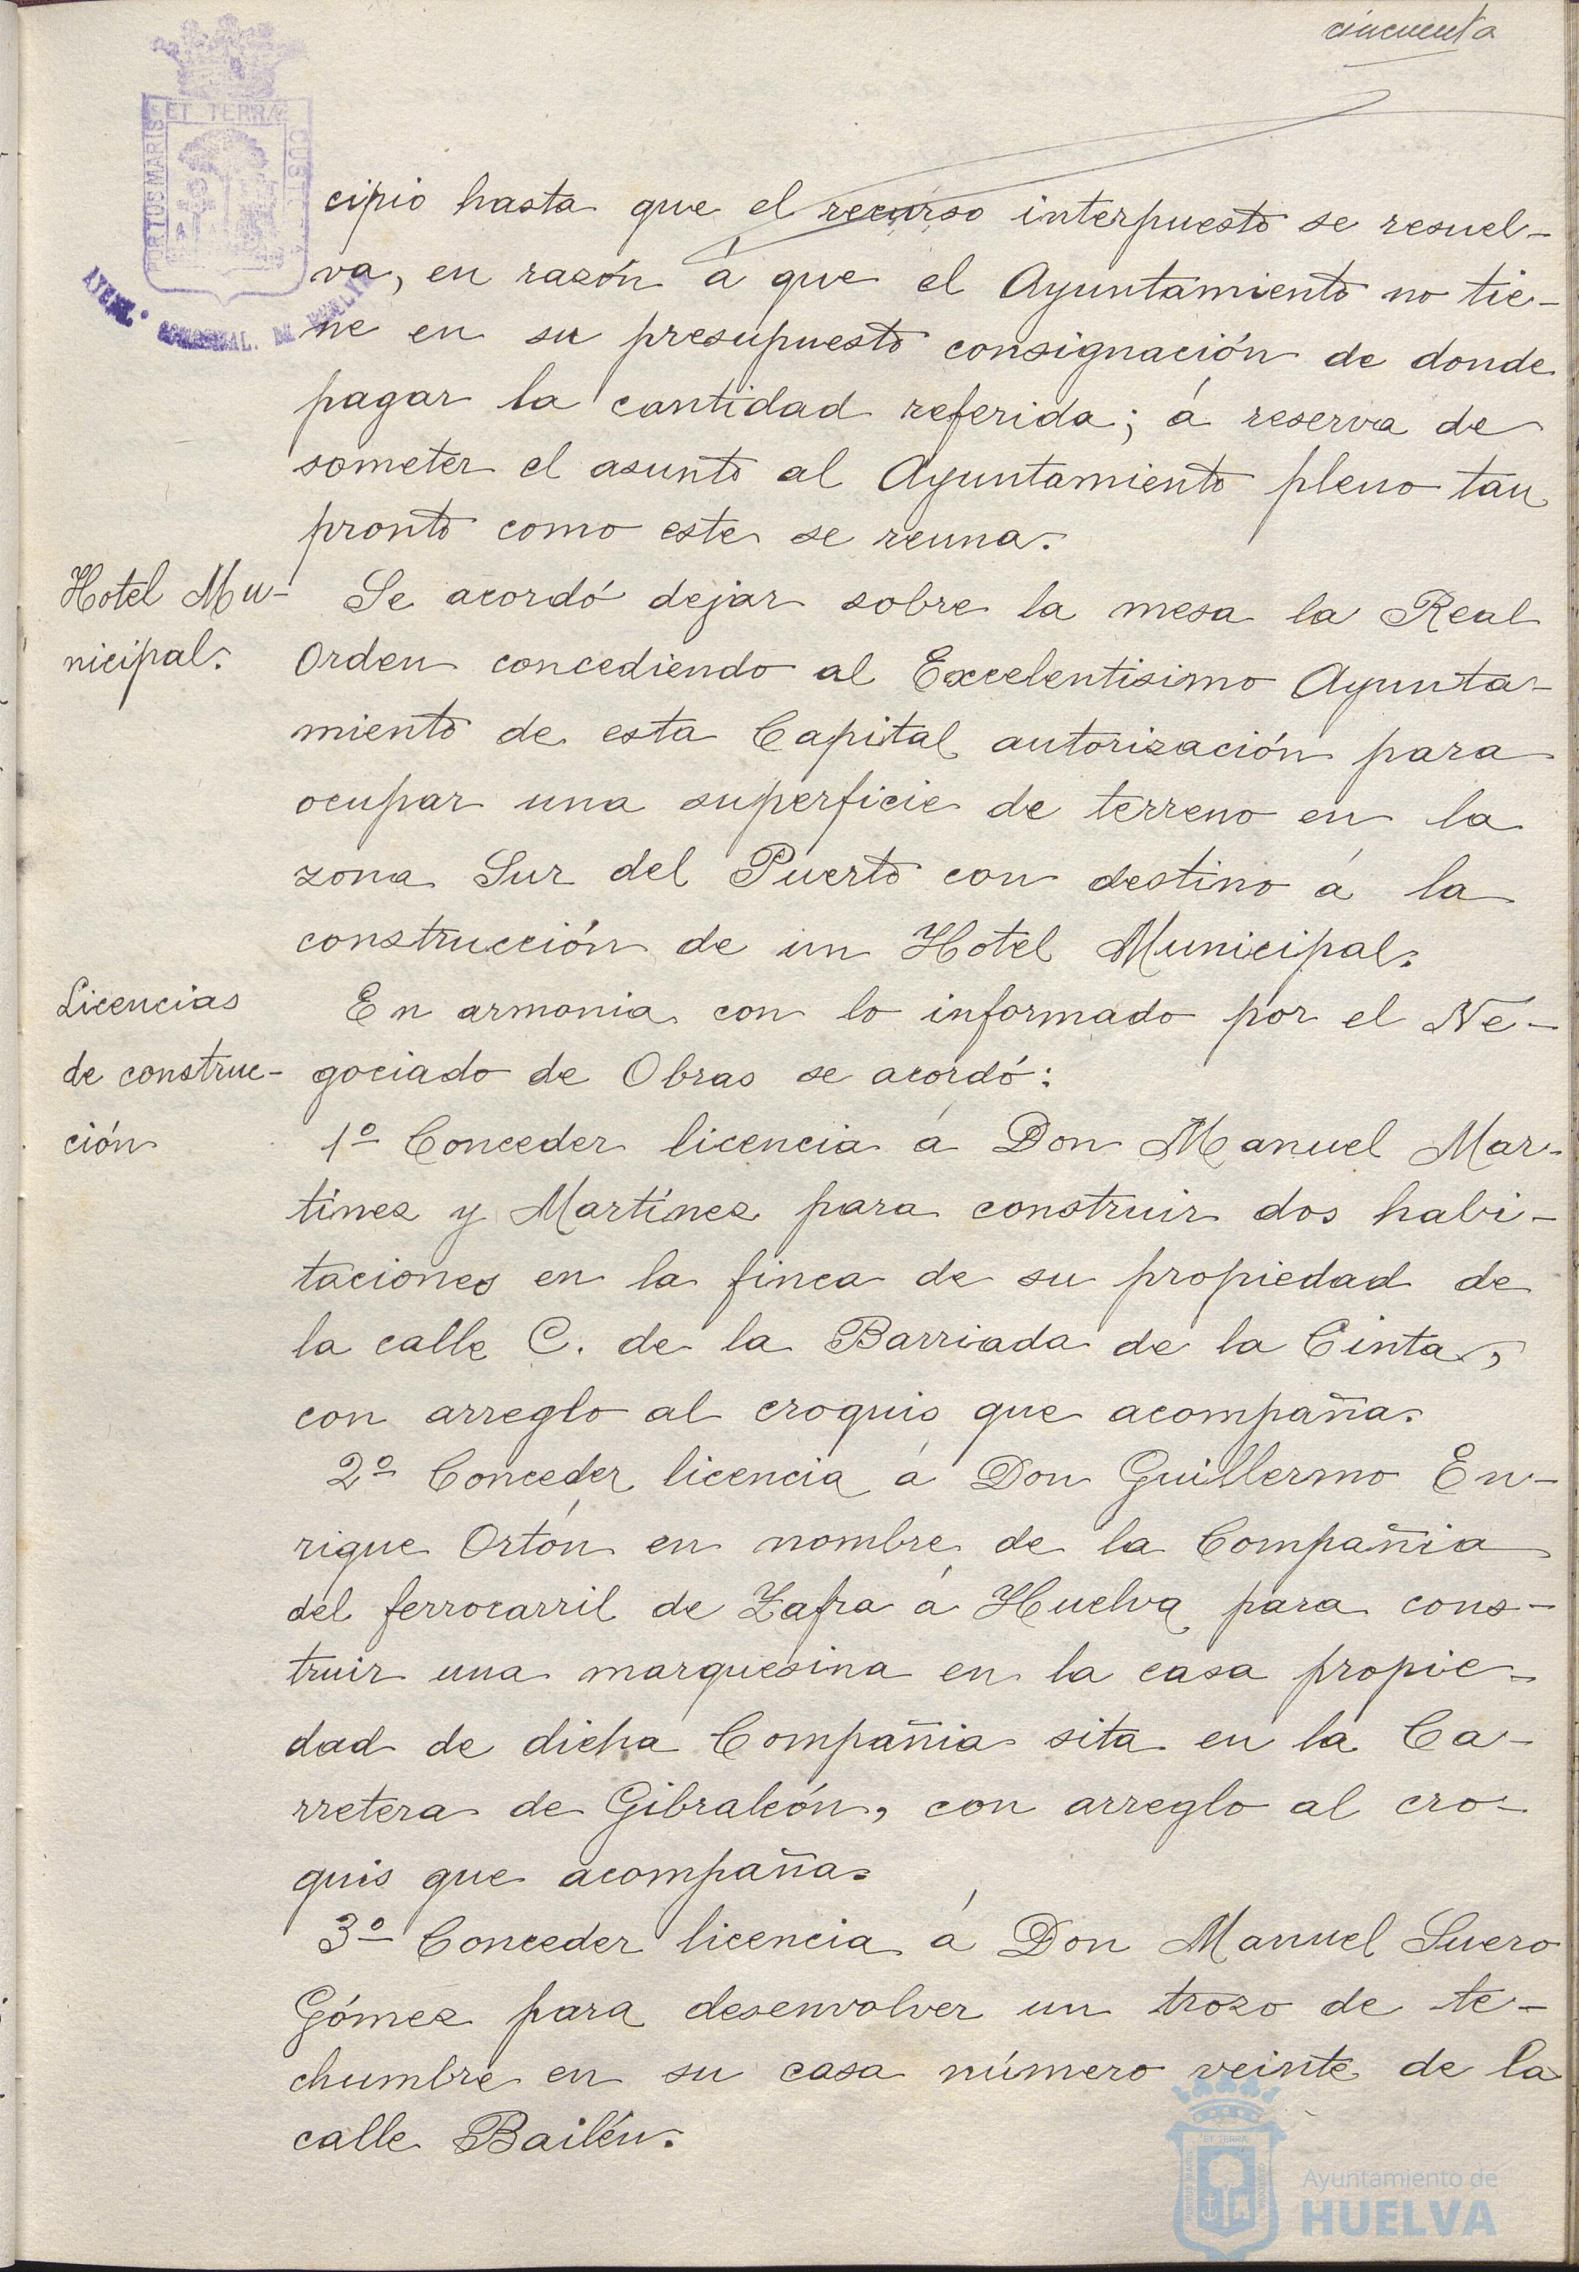 cincuenta
ET TERRA
PORTUS MARIS
cipio hasta que el recurso interpuesto se resuel-
va, en razón á que el Ayuntamiento no tie-
ne en su presupuesto consignación de donde
pagar la cantidad referida; á reserva de
someter el asunto al Ayuntamiento pleno tan
pronto como este se reuna.
Hotel Mu-
nicipal.
Se acordó dejar sobre la mesa la Real
Orden concediendo al Excelentisimo Ayunta-
miento de esta Capital autorización para
ocupar una superficie de terreno en la
zona Sur del Puerto con destino á la
construcción de un Hotel Municipal.
Licencias
de construc-
ción
En armonia con lo informado por el Ne-
gociado de Obras se acordó:
1º Conceder licencia á Don Manuel Mar-
tínez y Martínez para construir dos habi-
taciones en la finca de su propiedad de
la calle C. de la Barriada de la Cinta,
con arreglo al croquis que acompaña.
2º Conceder licencia á Don Guillermo En-
rique Ortón en nombre de la Compañia
del ferrocarril de Zafra á Huelva para cons-
truir una marquesina en la casa propie-
dad de dicha Compañia sita en la Ca-
rretera de Gibraleón, con arreglo al cro-
quis que acompaña.
3º Conceder licencia á Don Manuel Suero
Gómez para desenvolver un trozo de te-
chumbre en su casa número veinte de la
calle Bailén.
Ayuntamiento de
HUELVA